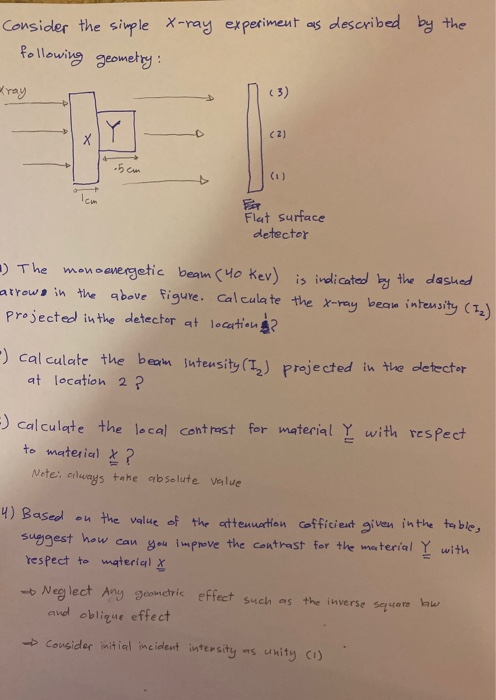 Consider the simple X-ray experiment as described by the
following geometry:
Xray
(3)
X
Y
(2)
.5 cm
(1)
1cm
Flat surface
detector
1) The monoenergetic beam (40 Kev) is indicated by the dashed
arrows in the above Figure. Calculate the x-ray beam intensity (I2)
Projected in the detector at location 1?
) calculate the beam intensity (I2) projected in the detector
at location 2?
) calculate the local contrast for material Y with respect
to material X?
Note: always take absolute value
4) Based on the value of the attenuation cofficient given in the table,
suggest how can you improve the contrast for the material Y with
respect to material X
→ Neglect Any geometric effect such as the inverse square law
and oblique effect
→ Consider initial incident intensity as unity (1)